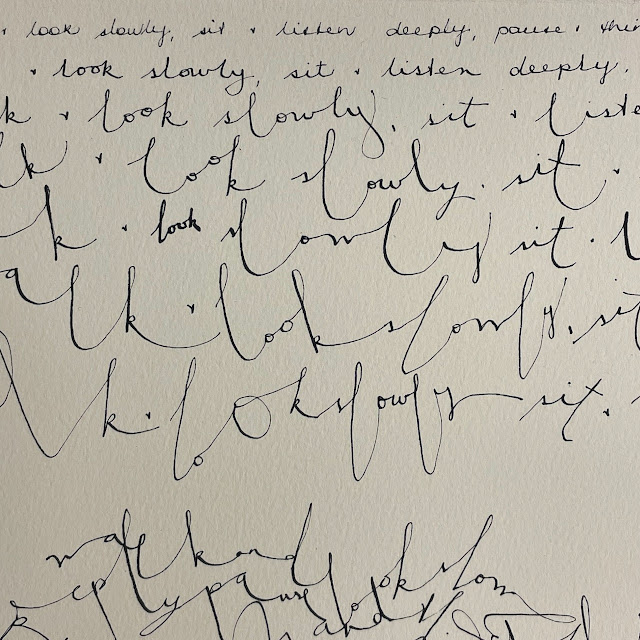 + look slowly, sit + listen deeply, pause + thin
+ look slowly, sit + listen deeply.
k + look slowly, sit + liste
lk + look slowly. sit +
k + look slowly sit. l
alk + look slowly, sit
lk. look slowly sit. +
walk and look slow
eeply pause
and